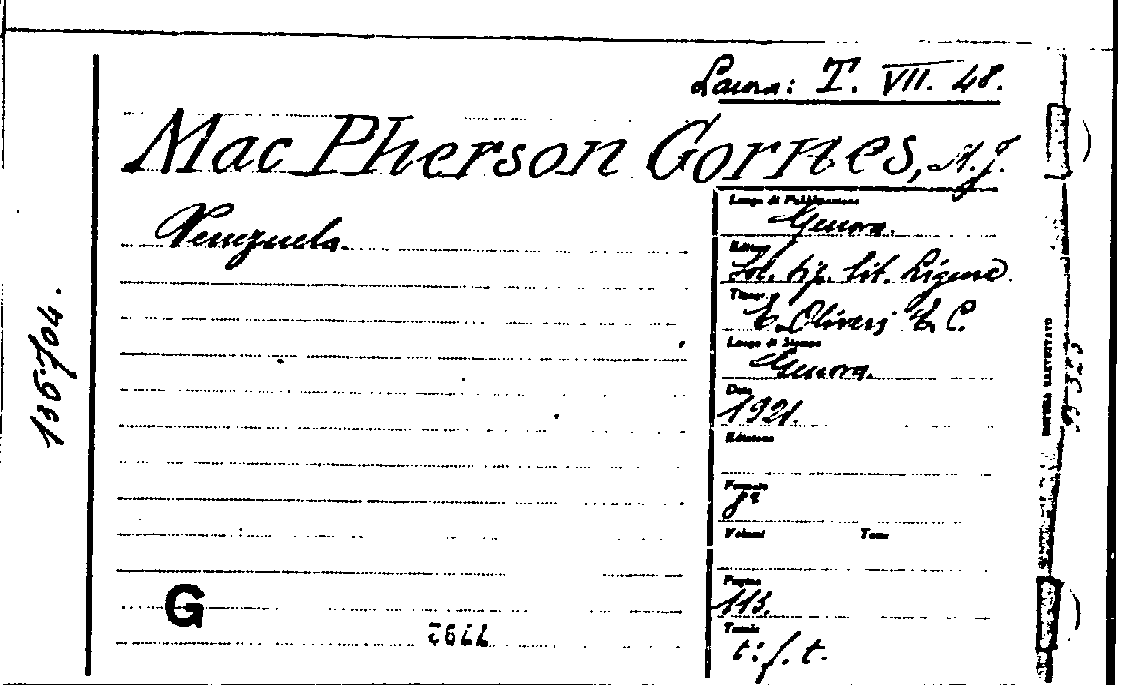 Laura: I. VII. 48.
Mac Pherson Gornes, A.J.
Venezuela.
Luogo di Pubblicazione
Genova.
Editore
Soc. tip. lit. Ligure
E. Oliveri & C.
Luogo di Stampa
Genova.
Data
1921.
Edizione
Formato
8º
Volumi Tomo
Pagine
113.
Tavole
t. f. t.
G
7792
135704.